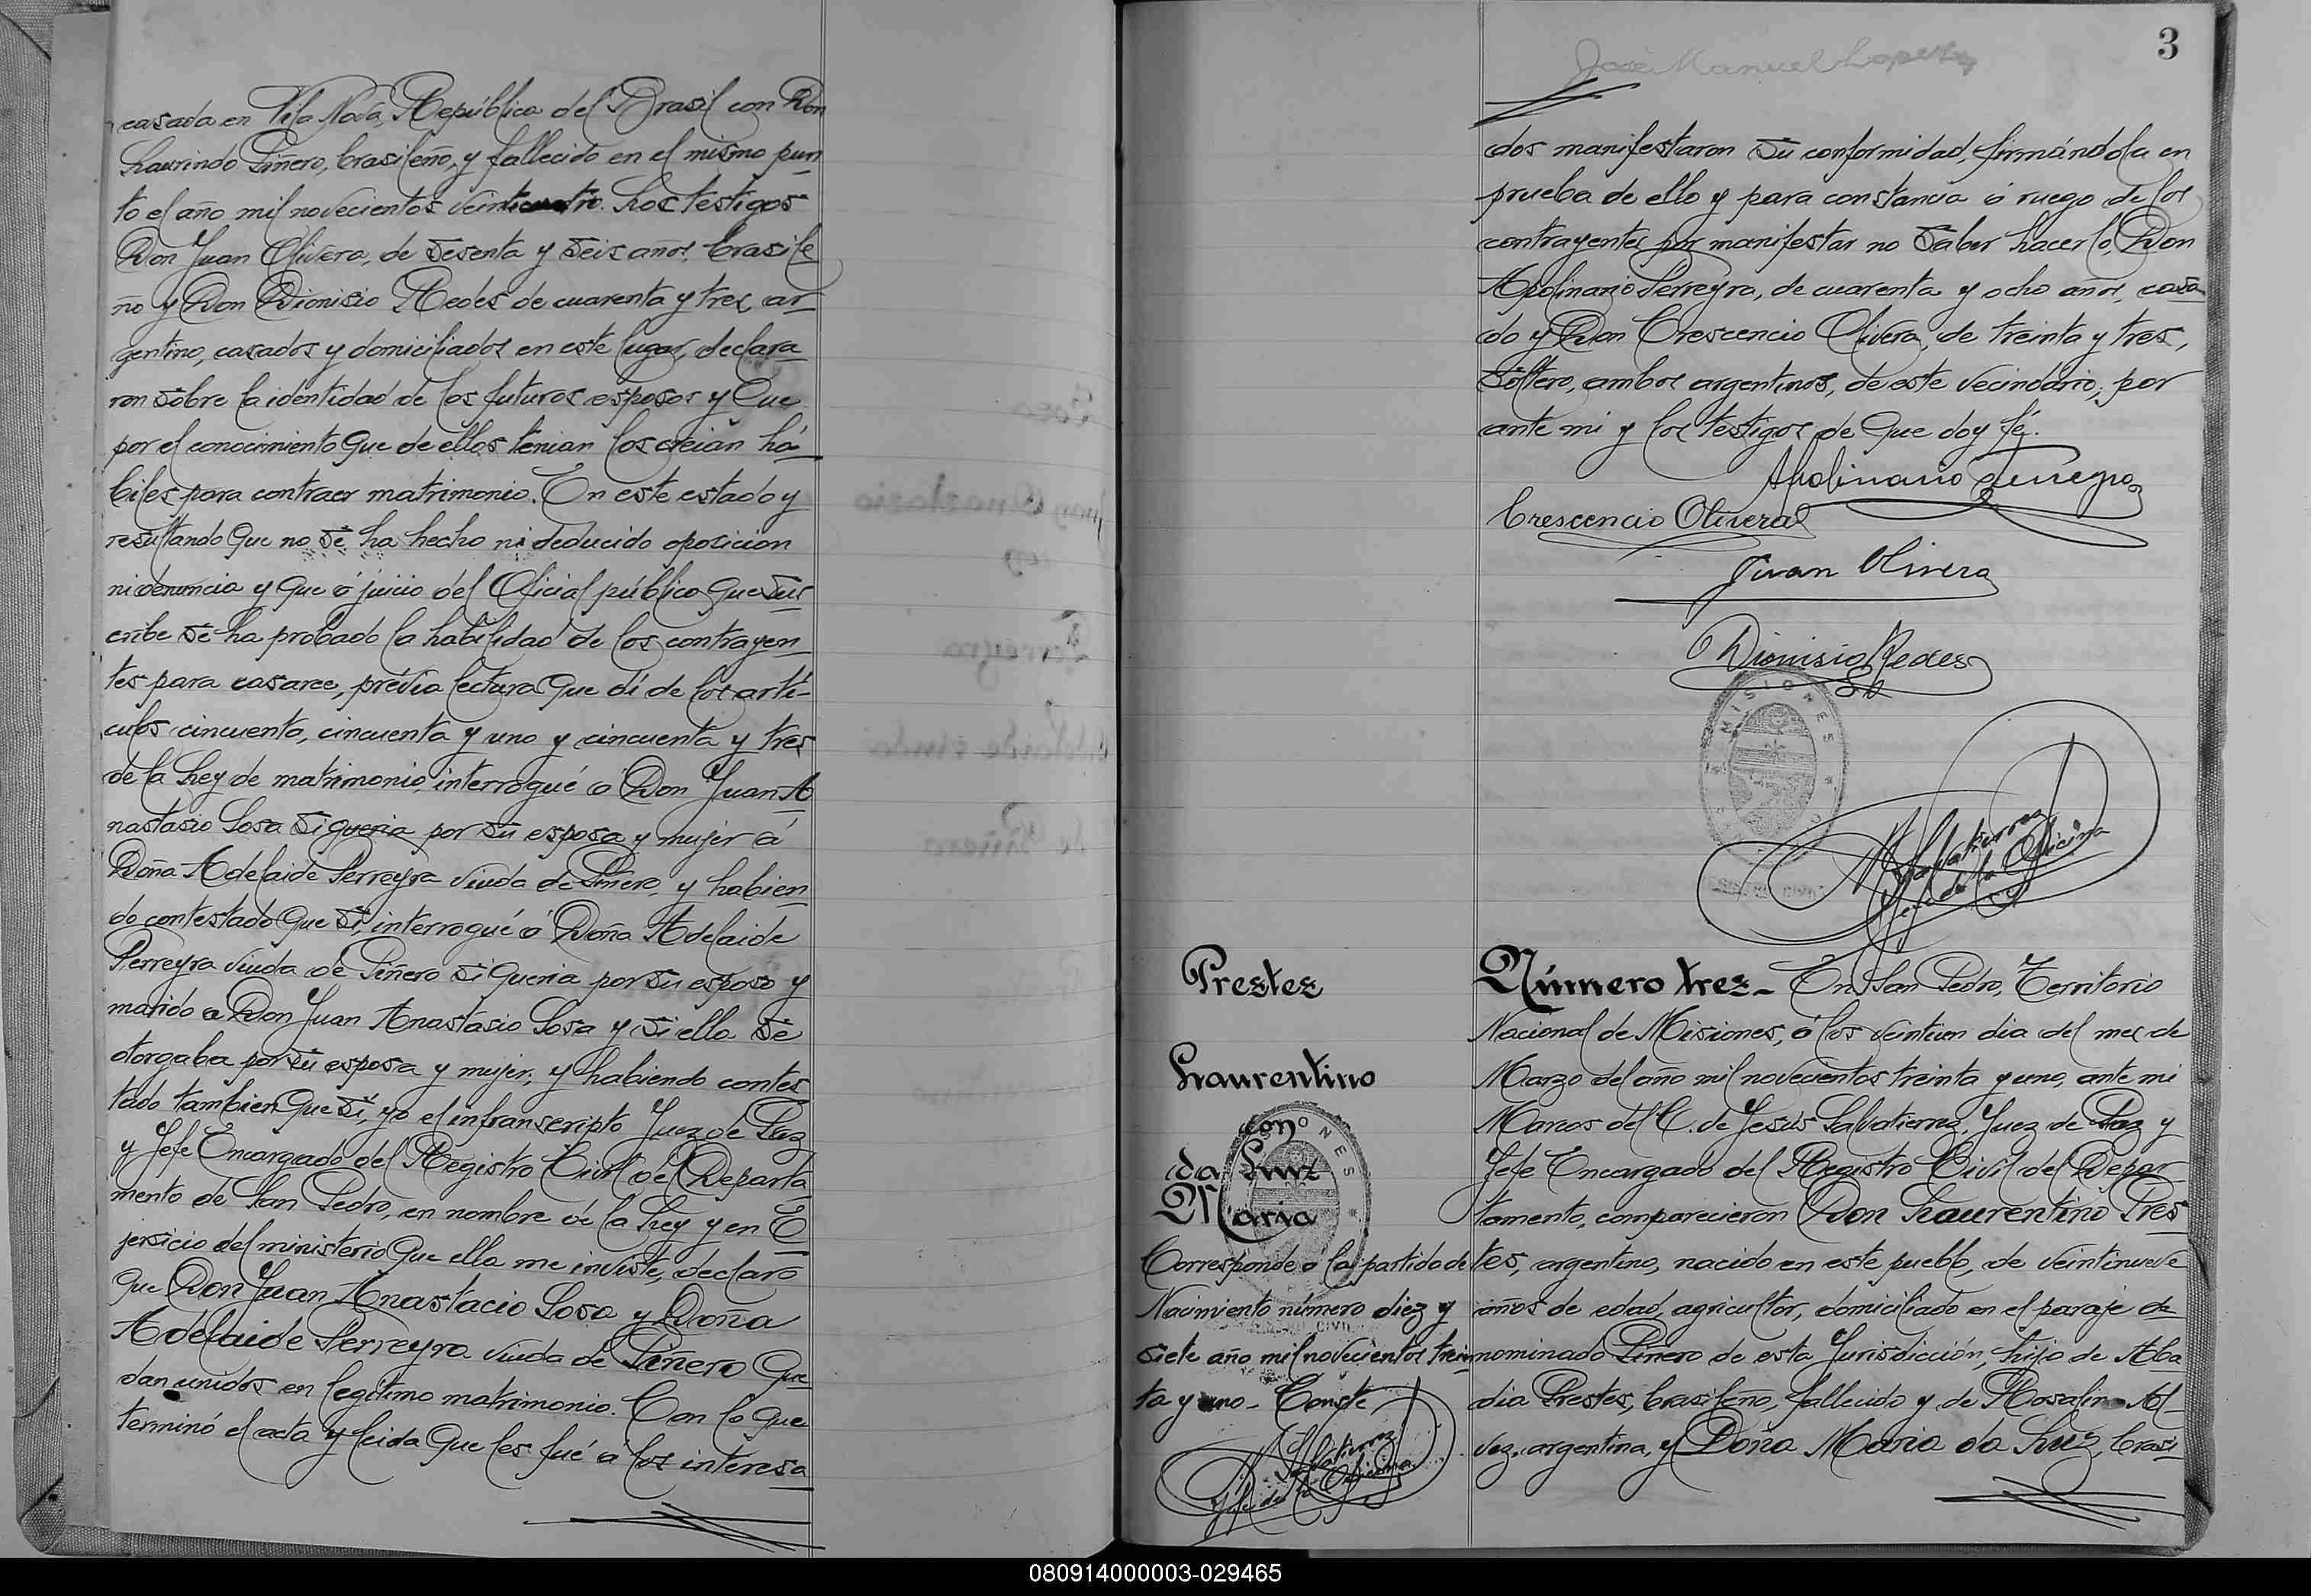 casada en Vila Nova, República del Brasil con Don
Laurindo Piñero, brasileño, y fallecido en el mismo pun
to el año mil novecientos veinticuatro. Los testigos
Don Juan Olivera, de sesenta y seis años, brasile
ño y Don Dionisio Redes de cuarenta y tres, ar
gentino, casados y domiciliados en este lugar, declara
ron sobre la identidad de los futuros esposos y Que
por el conocimiento Que de ellos tenian los creian há
biles para contraer matrimonio. En este estado y
resultando Que no se ha hecho ni deducido oposicion
ni denuncia y Que á juicio del Oficial público Que sus
cribe se ha probado la habilidad de los contrayen
tes para casarce, prévia lectura Que dí de los artí-
culos cincuenta, cincuenta y uno y cincuenta y tres
de la Ley de matrimonio, interrogué á Don Juan A
nastasio Sosa si queria por su esposa y mujer á
Doña Adelaide Perreyra viuda de Piñero, y habien
do contestado Que si, interrogué á Doña Adelaide
Perreyra viuda de Piñero si Queria por su esposo y
marido a Don Juan Anastasio Sosa y si ella se
otorgaba por su esposa y mujer; y habiendo contes
tado tambien Que si, yo el infranscripto Juez de Paz
y Jefe Encargado del Registro Civil del Departa
mento de San Pedro, en nombre de la Ley y en E
jersicio del ministerio Que ella me inviste, declaro
Que Don Juan Anastacio Sosa y Doña
Adelaide Perreyra viuda de Piñero Que
dan unidos en legítimo matrimonio. Con lo Que
terminó el acta y leida Que les fué á los interesa
José Manuel Lopes
3
dos manifestaron su conformidad, firmándola en
prueba de ello y para constancia á ruego de los
contrayentes por manifestar no saber hacerlo, Don
Apolinario Perreyra, de cuarenta y ocho años, casa
do y Don Crescencio Olivera, de treinta y tres,
soltero, ambos argentinos, de este vecindario; por
ante mi y los testigos de Que doy fé.
Apolinario Perreyra
Crescencio Olivera
Juan Olivera
Dionisio Redes
MISIONES
M Salvatierra
Jefe de la Oficina
Prestes
Laurentino
con
da Luz
Maria
Corresponde á la partida de
Nacimiento número diez y
siete año mil novecientos trein
ta y uno - Conste
M Salvatierra
Jefe de la Oficina
Número tres - En San Pedro, Territorio
Nacional de Misiones, á los veintiun dia del mes de
Marzo del año mil novecientos treinta y uno, ante mi
Marcos del C. de Jesús Salvatierra, Juez de Paz y
Jefe Encargado del Registro Civil del Depar
tamento, comparecieron Don Laurentino Pres
tes, argentino, nacido en este pueblo, de veintinueve
años de edad, agricultor, domiciliado en el paraje de
nominado Piñero de esta Jurisdicción, hijo de Aba
dia Prestes, brasileño, fallecido y de Rosalina Al
vez, argentina, y Doña Maria da Luz, brasi
080914000003-029465